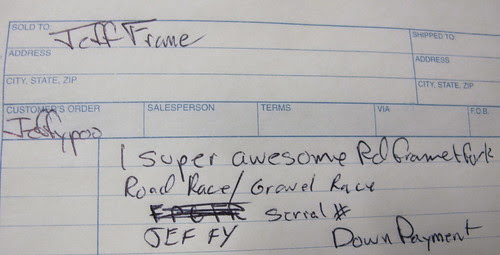 SOLD TO Jeff Frame SHIPPED TO
ADDRESS ADDRESS
CITY, STATE, ZIP CITY, STATE, ZIP
CUSTOMER'S ORDER SALESPERSON TERMS VIA F.O.B.
Jeffypoo
1 super awesome Rd frame+fork
Road Race/Gravel Race
Serial #
JEFFY Down Payment